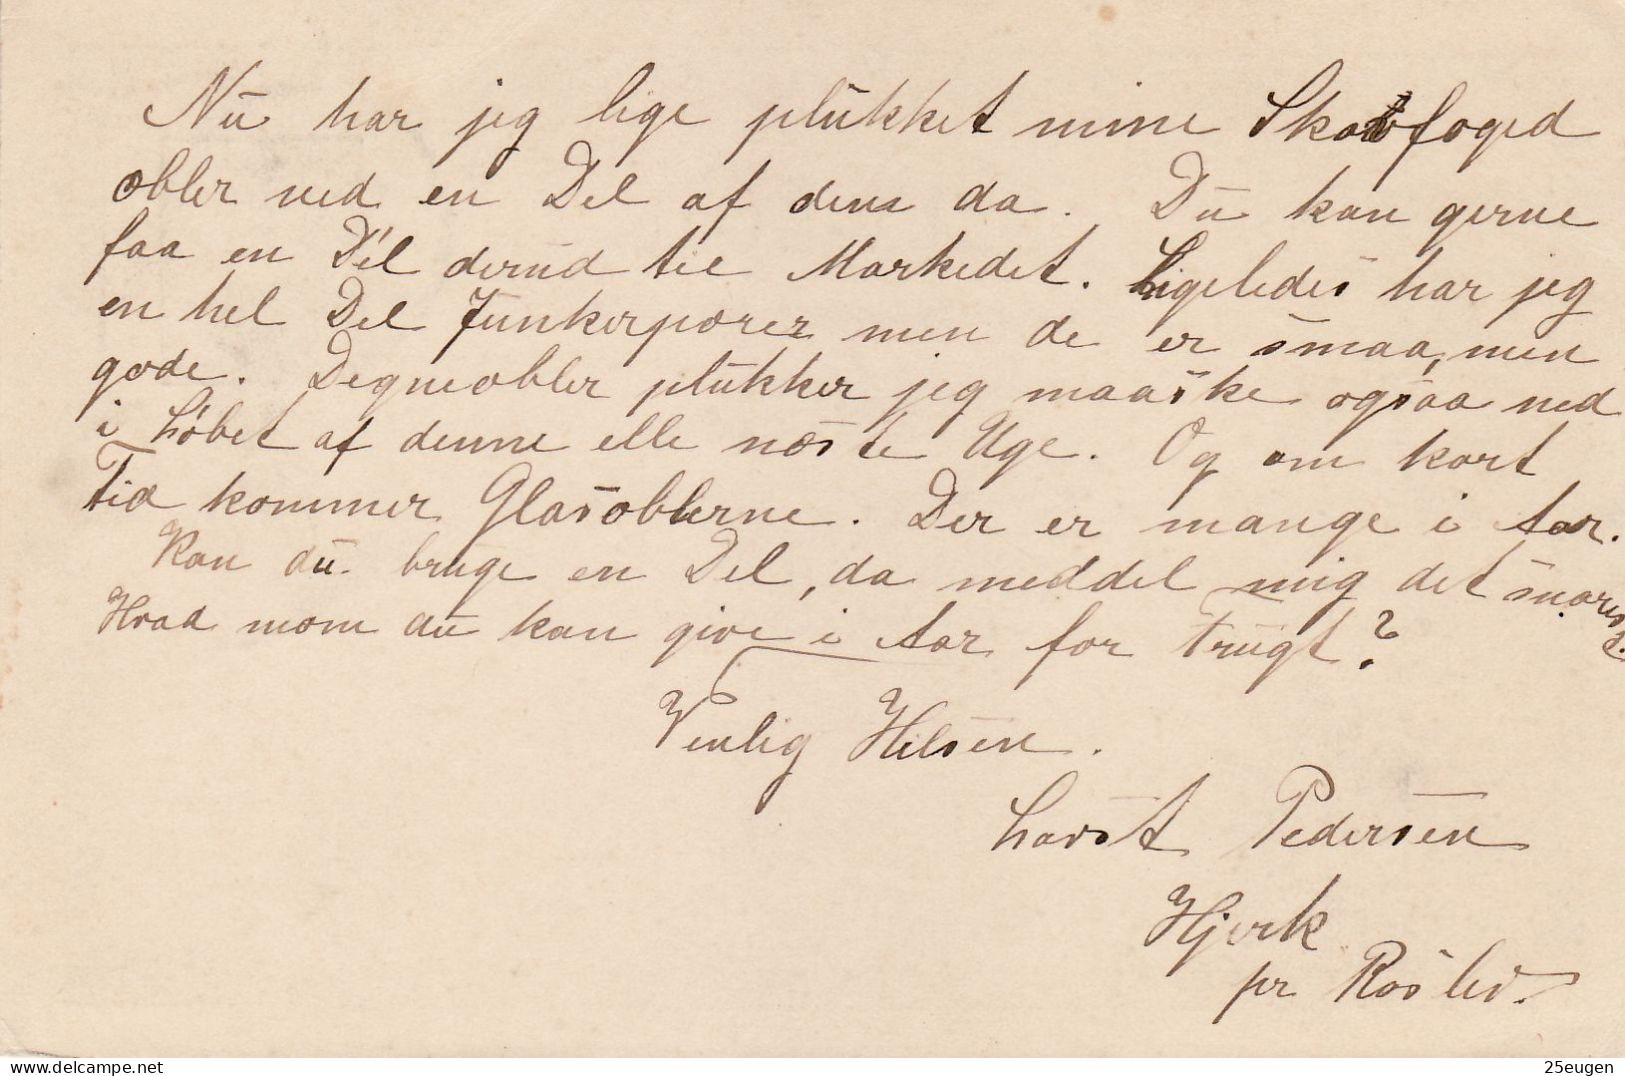 Nu har jeg lige plukket mine Skovfoged
æbler ned en Del af dem da. Du kan gerne
faa en Del derud til Markedet. Ligeledes har jeg
en hel Del Junkerpærer men de er smaa, men
gode. Degneæbler plukker jeg maaske ogsaa ned
i Løbet af denne elle næste Uge. Og om kort
Tid kommer Glasæblerne. Der er mange i Aar.
Kan du bruge en Del, da meddel mig det snarest.
Hvad mom du kan give i Aar for Frugt?
Venlig Hilsen.
Laust Pedersen
Hjerk
pr Roslev.
25eugen